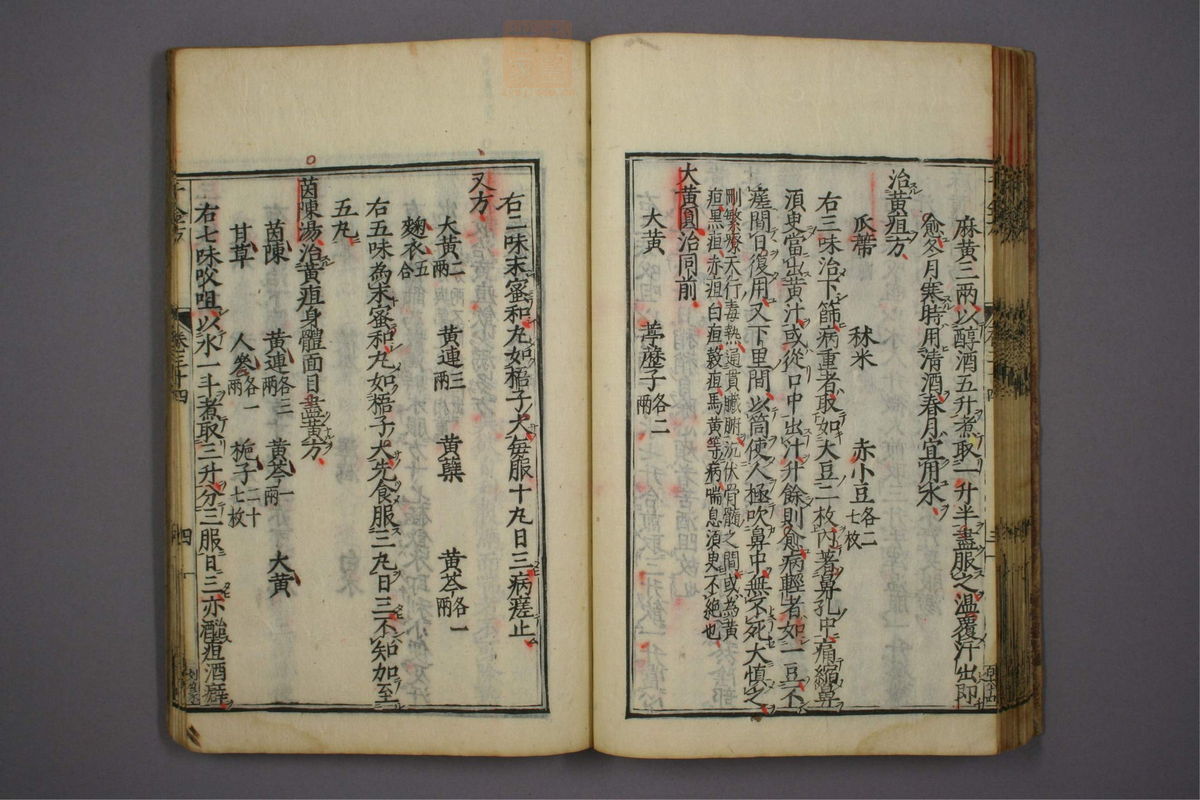 麻黄三兩以醇酒五升煮取一升半盡服之温覆汗出即
愈冬月寒時用清酒春月宜用水
治黄疸方
瓜蔕 秫米 赤小豆各二七枚
右三味治下篩病重者取如大豆二枚内著鼻孔中痛縮鼻
須臾當出黄汁或從口中出汁升餘則愈病輕者如一豆不
瘥間日復用又下里間以筒使人極吹鼻中無不死大慎之
剛繁療天行毒熱通貫臟腑沉伏骨髓之間或為黄
疸黒疸赤疸白疸穀疸馬黄等病喘息須臾不絶也
大黄圓治同前
大黄 葶藶子各二兩
右二味末蜜和丸如梧子大每服十丸日三病瘥止
又方
大黄二兩 黄連三兩 黄蘗 黄芩各一兩
麴衣五合
右五味為末蜜和丸如梧子大先食服三丸日三不知加至
五丸
茵陳湯治黄疸身體面目盡黄方
茵陳 黄連各三兩 黄芩二兩 大黄
甘草 人參各一兩 梔子二十七枚
右七味㕮咀以水一斗煮取三升分三服日三亦治酒疸酒癖
千金方
卷三十四
四